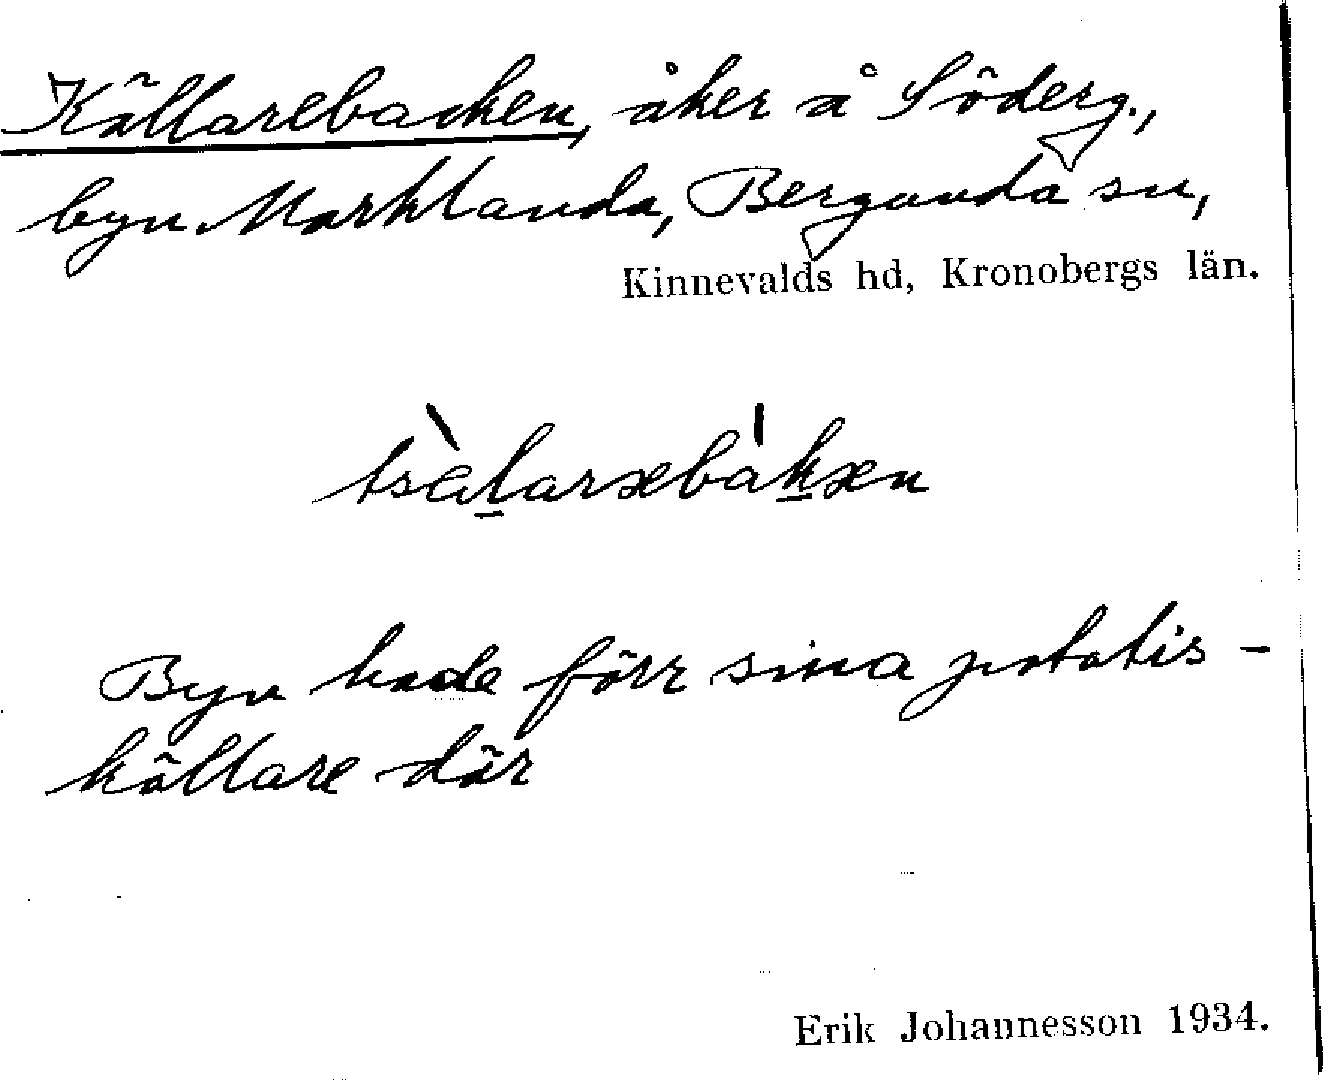 Källarebacken, åker å Söderg.,
byn Marklanda, Bergunda sn,
Kinnevalds hd, Kronobergs län.
tsælaræbakæn
Byn hade förr sina potatis-
källare där
Erik Johannesson 1934.